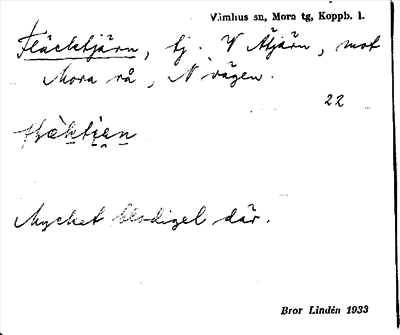 Våmhus sn, Mora tg, Koppb. l.
Fläcktjärn, tj. V Åtjärn, mot
Mora rå, N vägen.
22
Mycket blodigel där.
Bror Lindén 1933